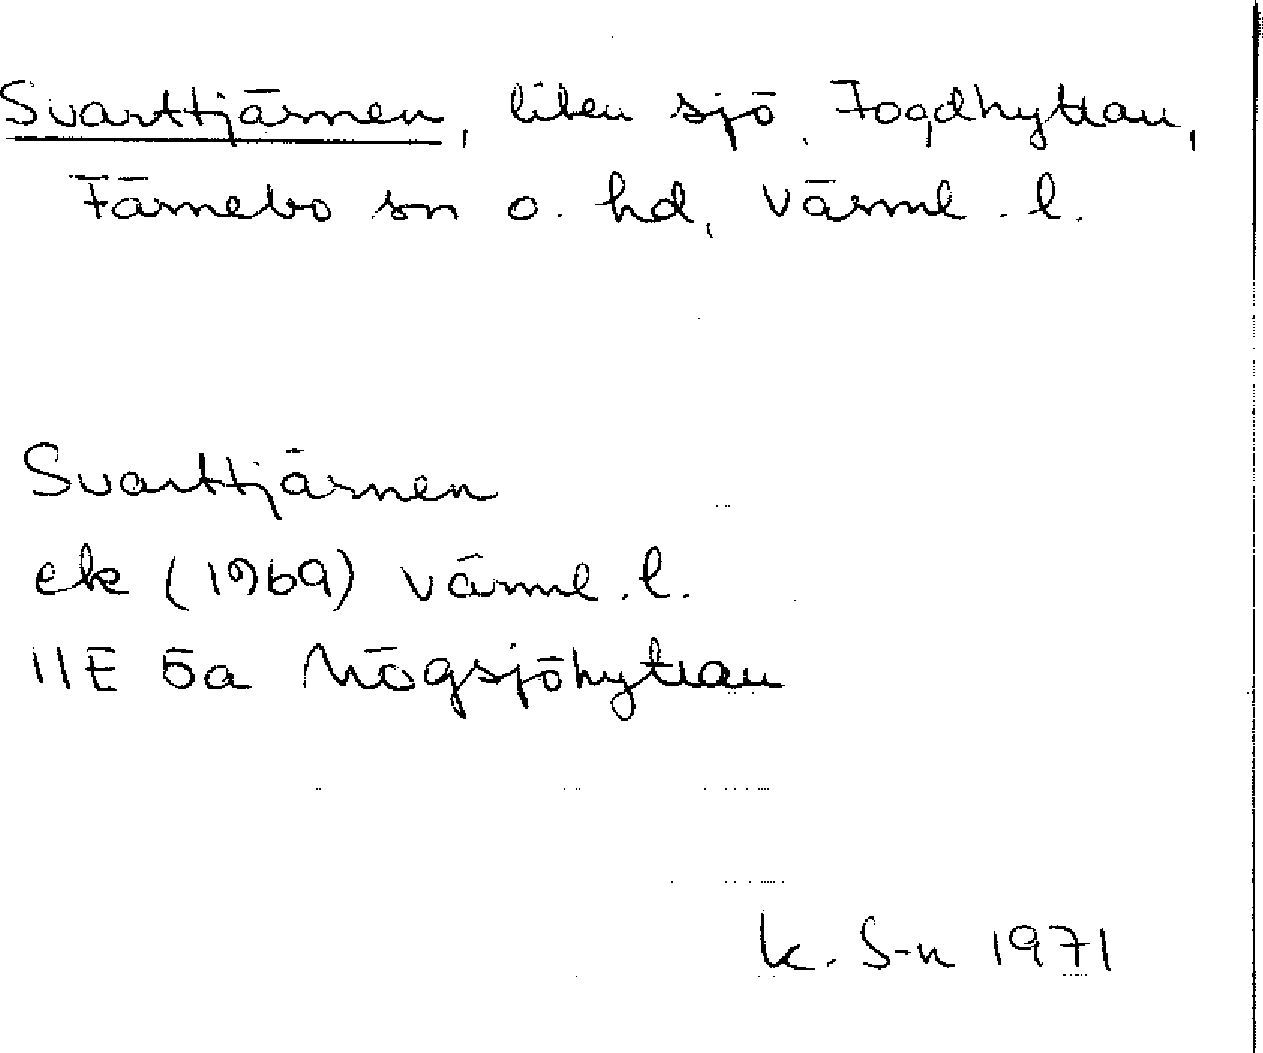 Svarttjärnen, liten sjö, Fogdhyttan,
Färnebo sn o. hd, Värml. l.
Svarttjärnen
ek (1969) Värml. l.
11E 5a Högsjöhyttan
K. S-n 1971